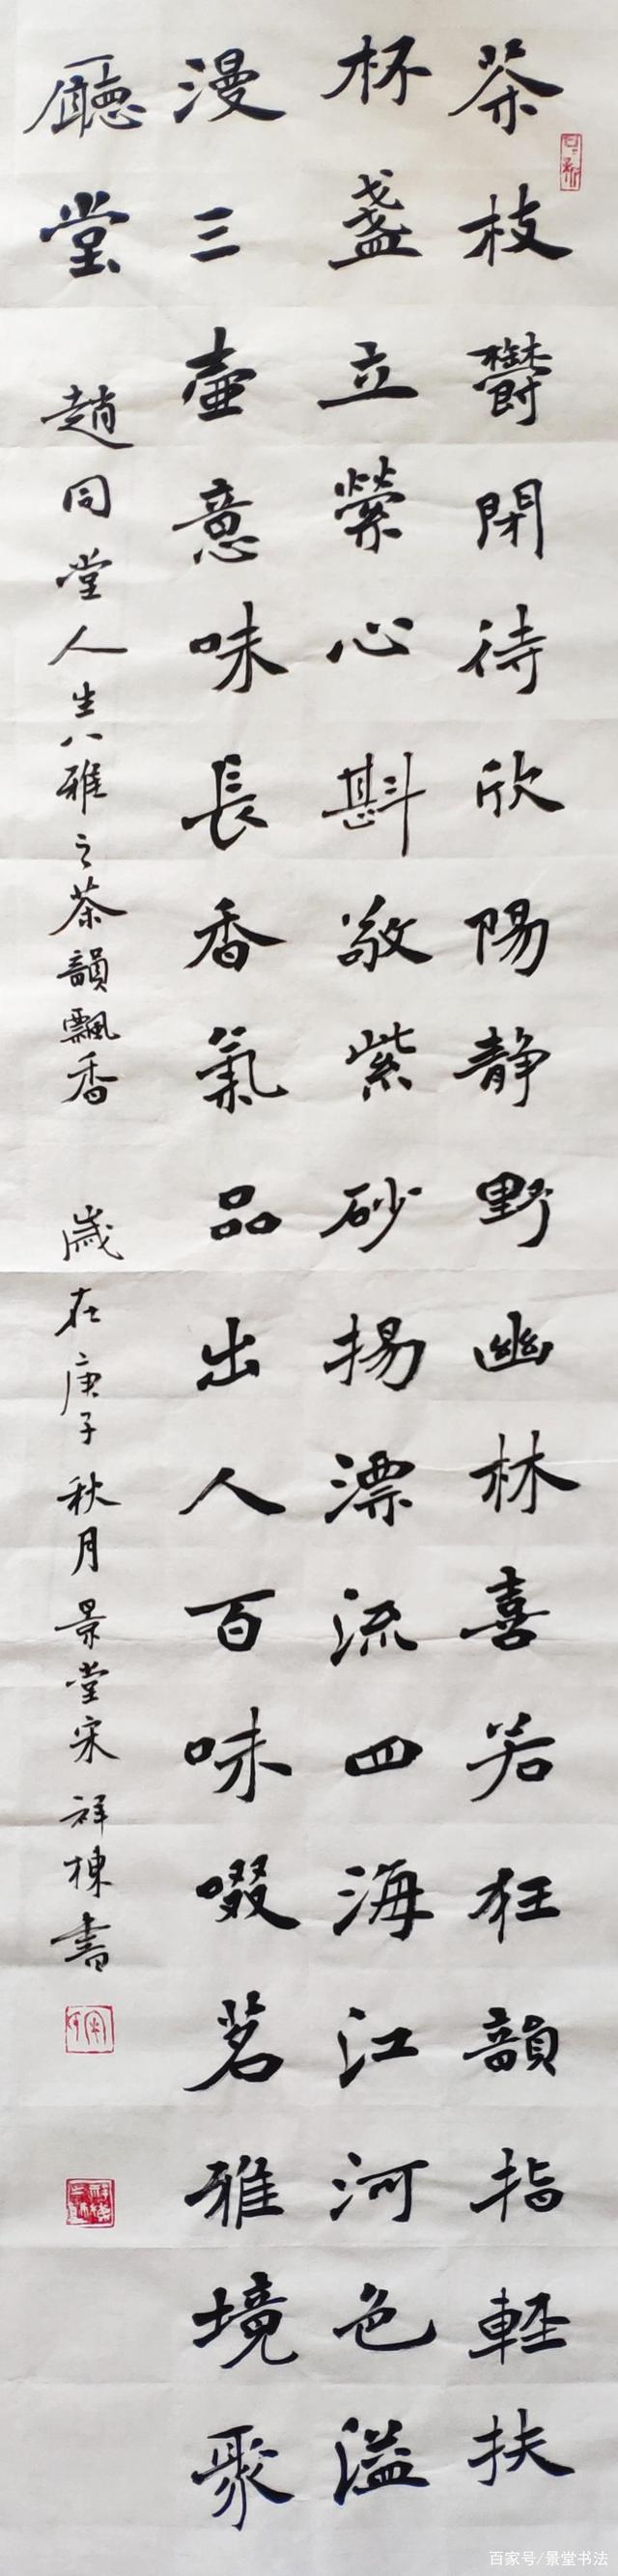 茶枝欝閉待欣陽靜野幽林喜若狂韻指輕扶
杯盞立縈心斟敬紫砂揚漂流四海江河色溢
漫三壺意味長香氣品出人百味啜茗雅境聚
廳堂 趙同堂人生八雅之茶韻飄香 歲在庚子秋月景堂宋祥棟書
百家号/景堂书法